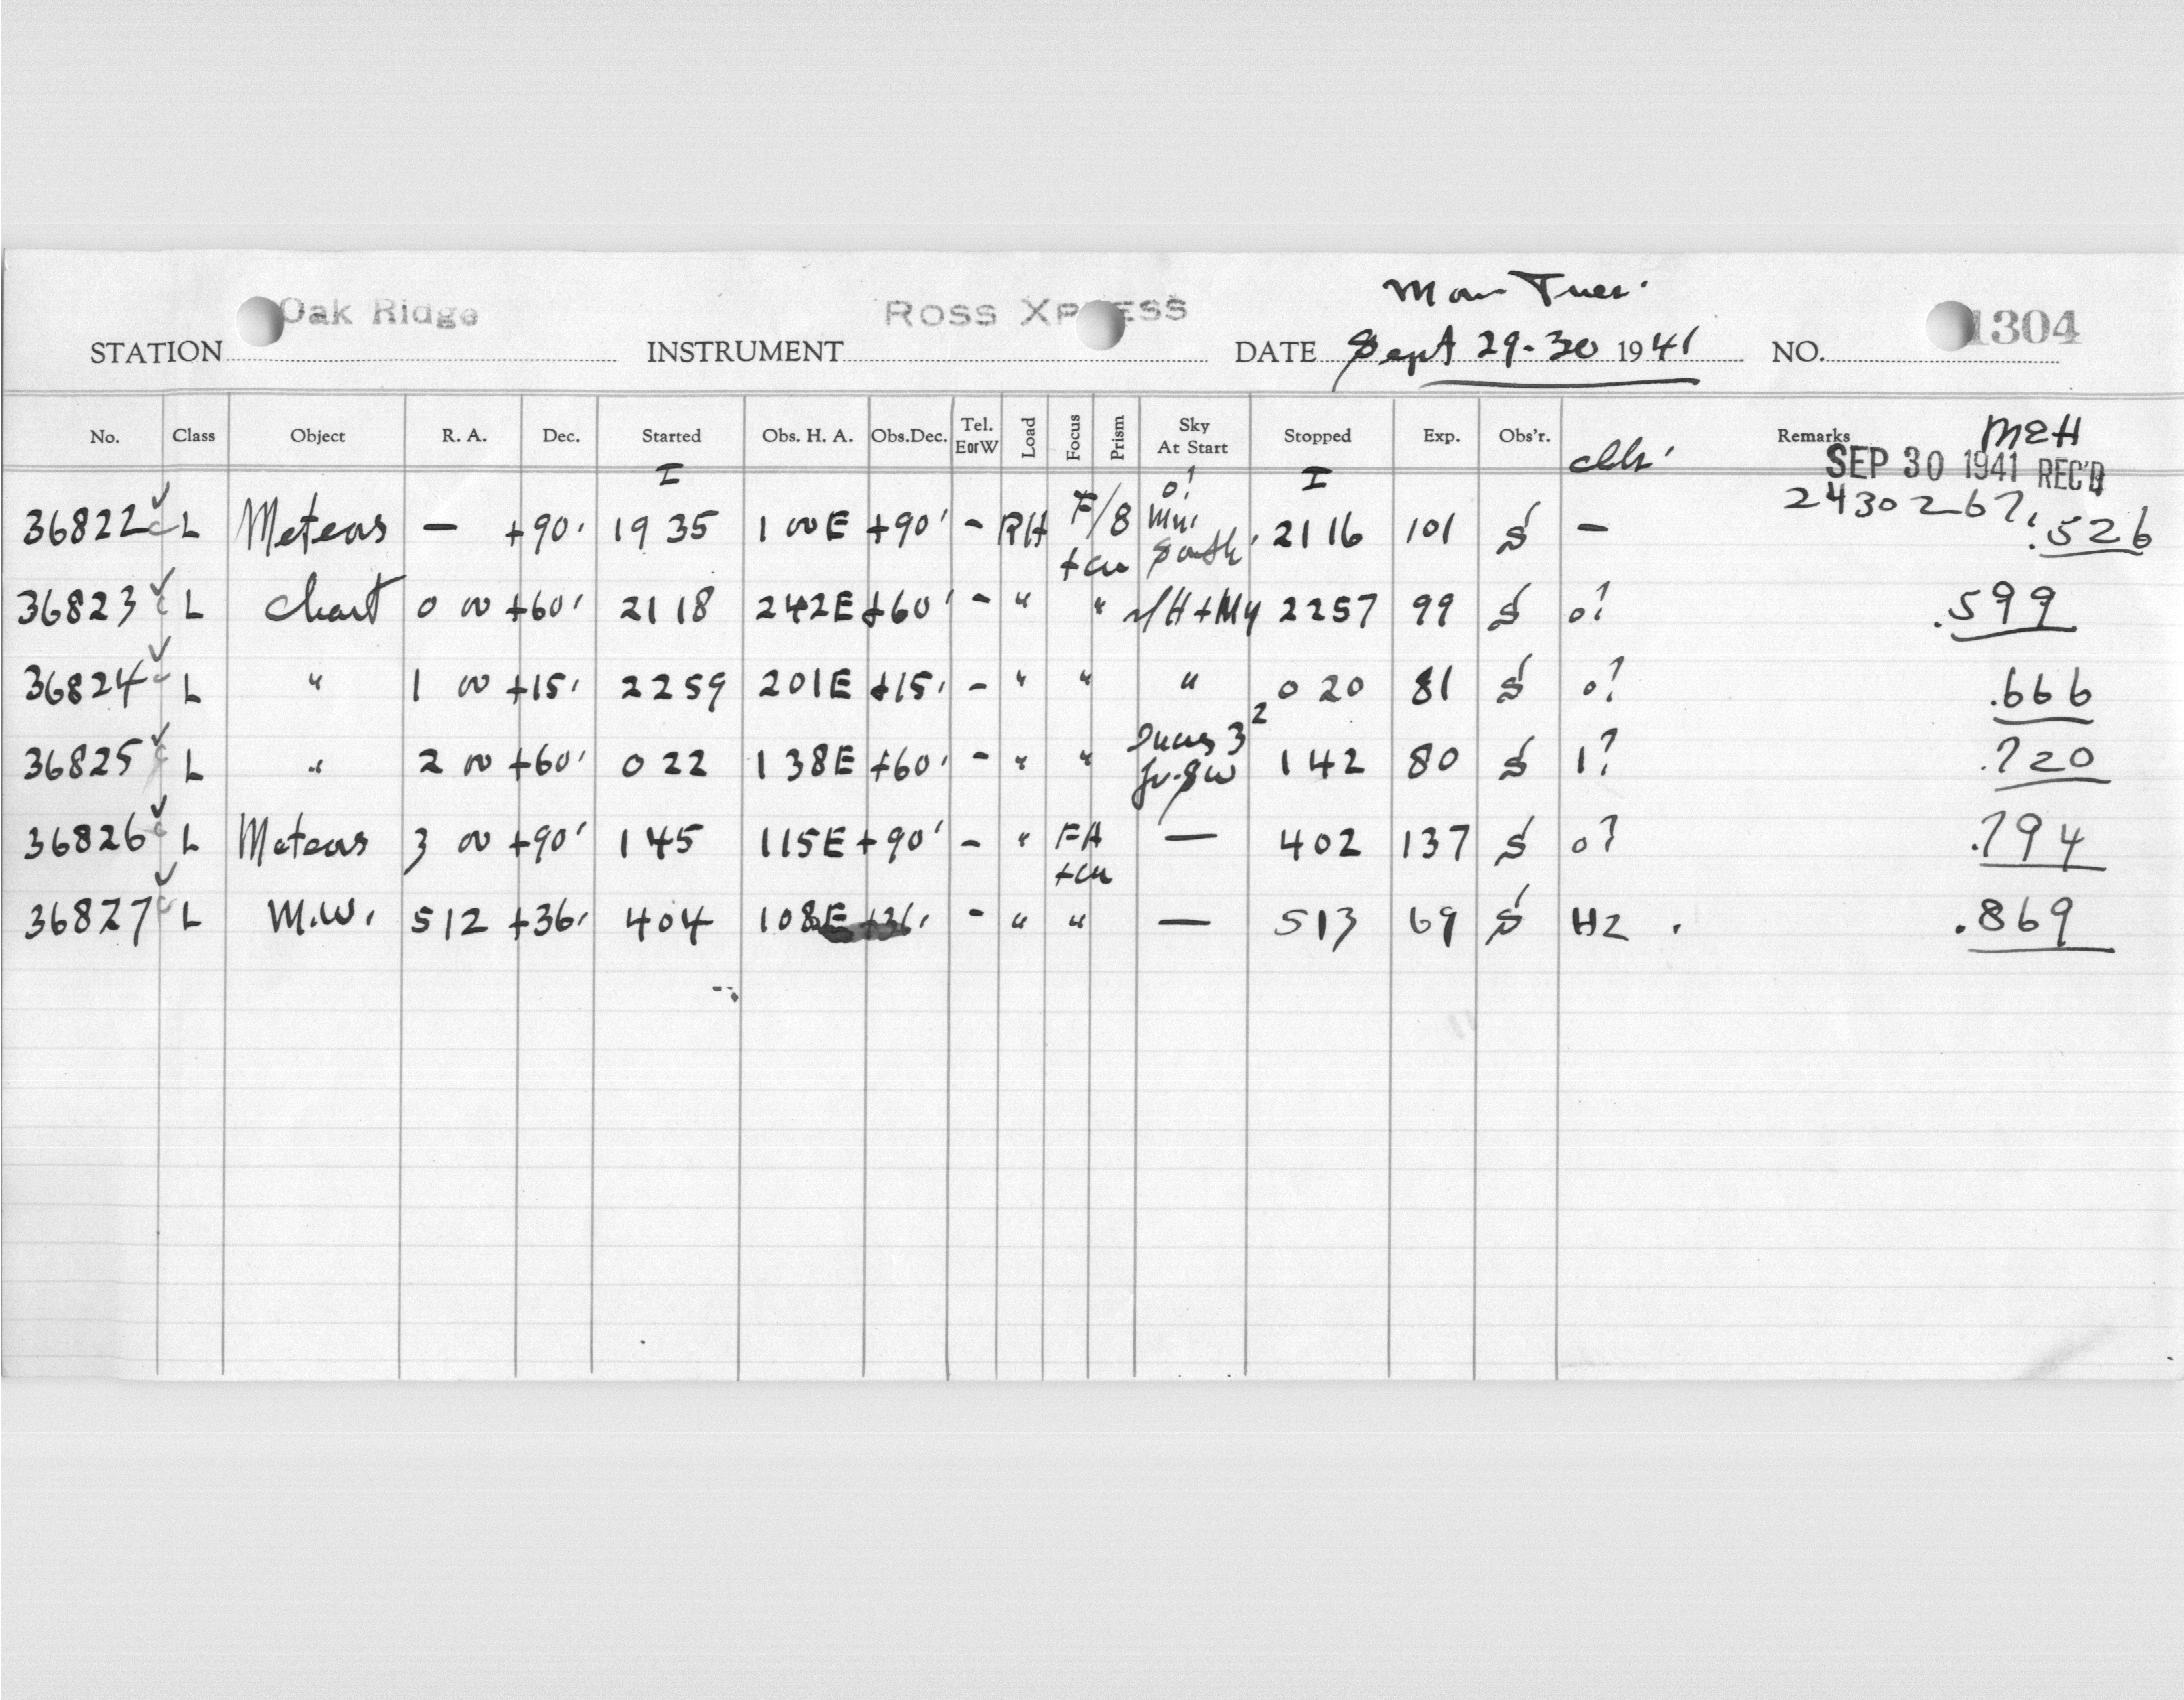 Mon Tues.
Oak Ridge ROSS XPRESS 1304
STATION INSTRUMENT DATE Sept 29-30 1941 NO.
No. Class Object R. A. Dec. Started Obs. H. A. Obs.Dec. Tel. EorW Load Focus Prism Sky At Start Stopped Exp. Obs'r. Remarks MEH
I I SEP 30 1941 REC'D
2430267.
36822 ✓ c L Meteors — +90. 19 35 1 00E +90' - RH F/8 South 21 16 101 S — .526
36823 ✓ c L Chart 0 00 +60' 21 18 242E +60' - " " 2257 99 S 0? .599
36824 ✓ c L " 1 00 +15. 2259 201E +15. - " " " 0 20 81 S 0? .666
36825 ✓ c L " 2 00 +60' 0 22 1 38E +60. - " " 1 42 80 S 1? .720
36826 ✓ c L Meteors 3 00 +90' 1 45 115E +90' - " FA — 402 137 S 0? .794
36827 ✓ c L M.W. 5 12 +36. 4 04 108E +36. - " " — 513 69 S H2 .869